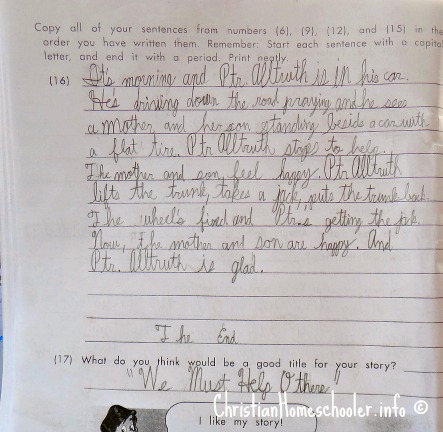 Copy all of your sentences from numbers (6), (9), (12), and (15) in the
order you have written them. Remember: Start each sentence with a capital
letter, and end it with a period. Print neatly.
(16) It's morning and Ptr. Alltruth is in his car.
He's driving down the road praying and he sees
a mother and her son standing beside a car with
a flat tire. Ptr Alltruth stops to help.
The mother and son feel happy. Ptr Alltruth
lifts the trunk, takes a jack, puts the trunk back.
The wheel's fixed and Ptr.s getting the jack.
Now, the mother and son are happy. And
Ptr. Alltruth is glad.
The End
(17) What do you think would be a good title for your story?
"We Must Help Others"
ChristianHomeschooler.info ©
I like my story!